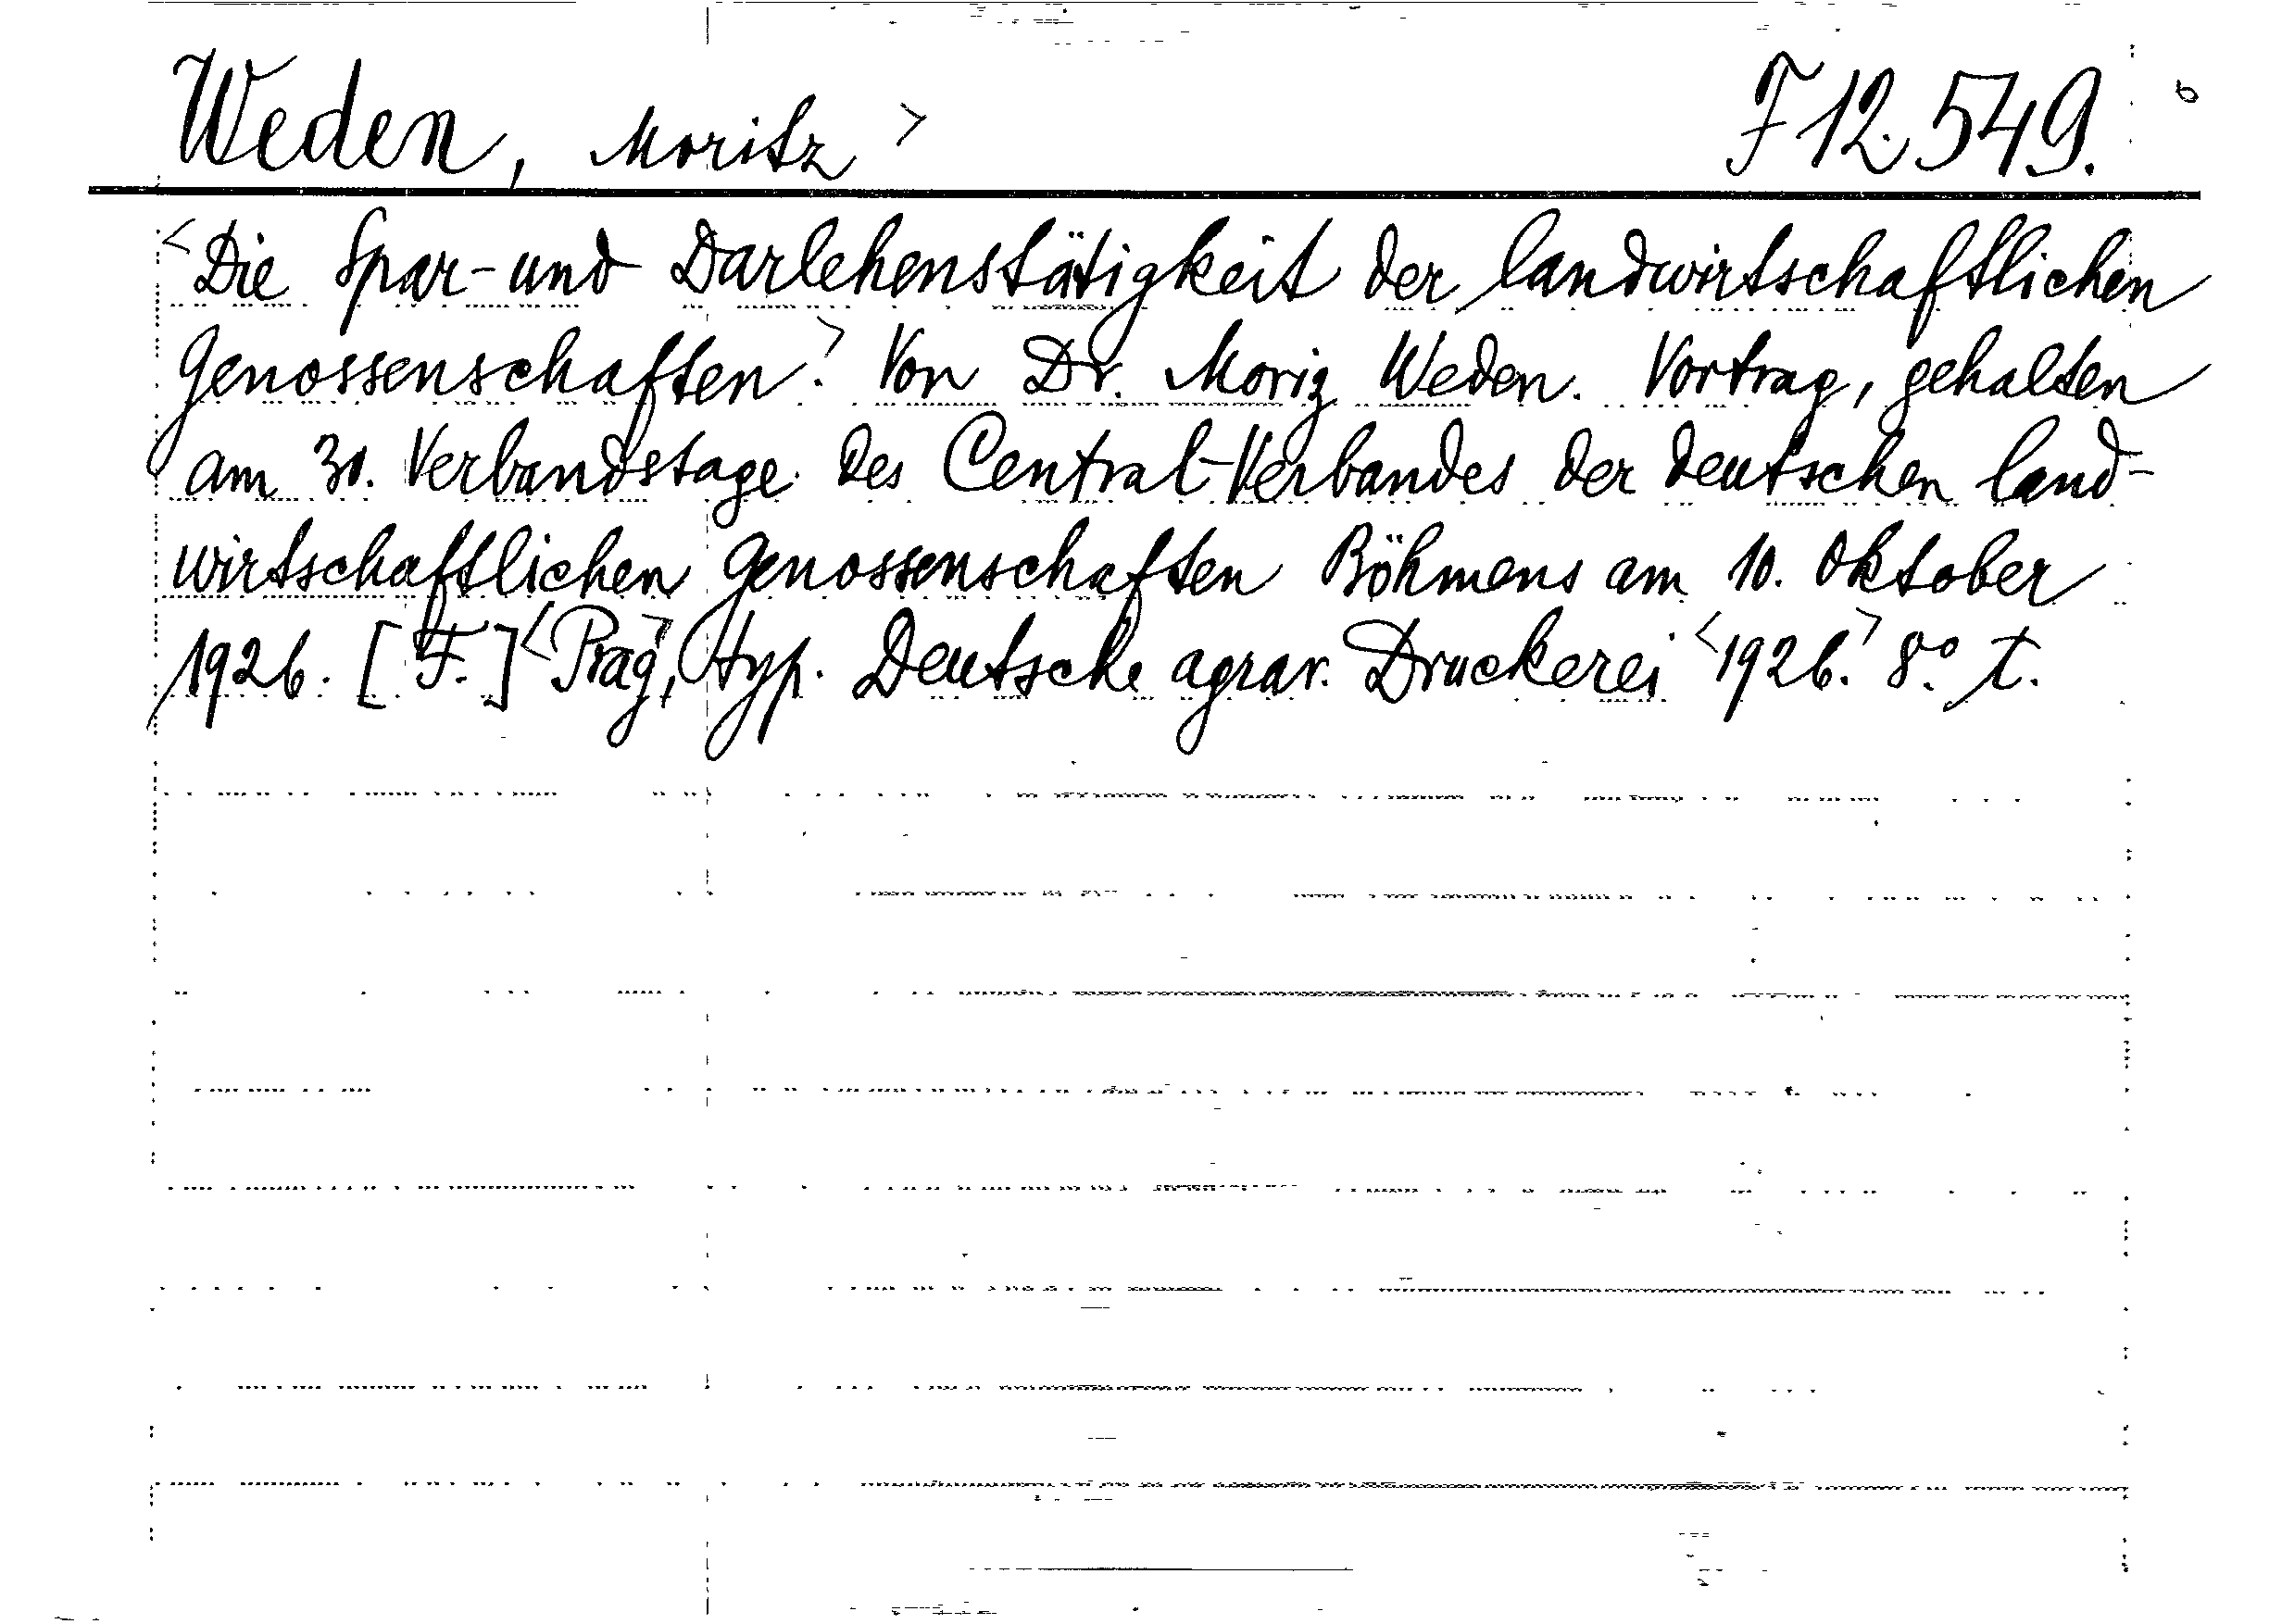 Weden, Moritz > F 12.549.
<Die Spar- und Darlehenstätigkeit der landwirtschaftlichen
Genossenschaften.> Von Dr. Moriz Weden. Vortrag, gehalten
am 30. Verbandstage des Central-Verbandes der deutschen land-
wirtschaftlichen Genossenschaften Böhmens am 10. Oktober
1926. [F.] <Prag>, typ. Deutsche agrar. Druckerei <1926.> 8° T.